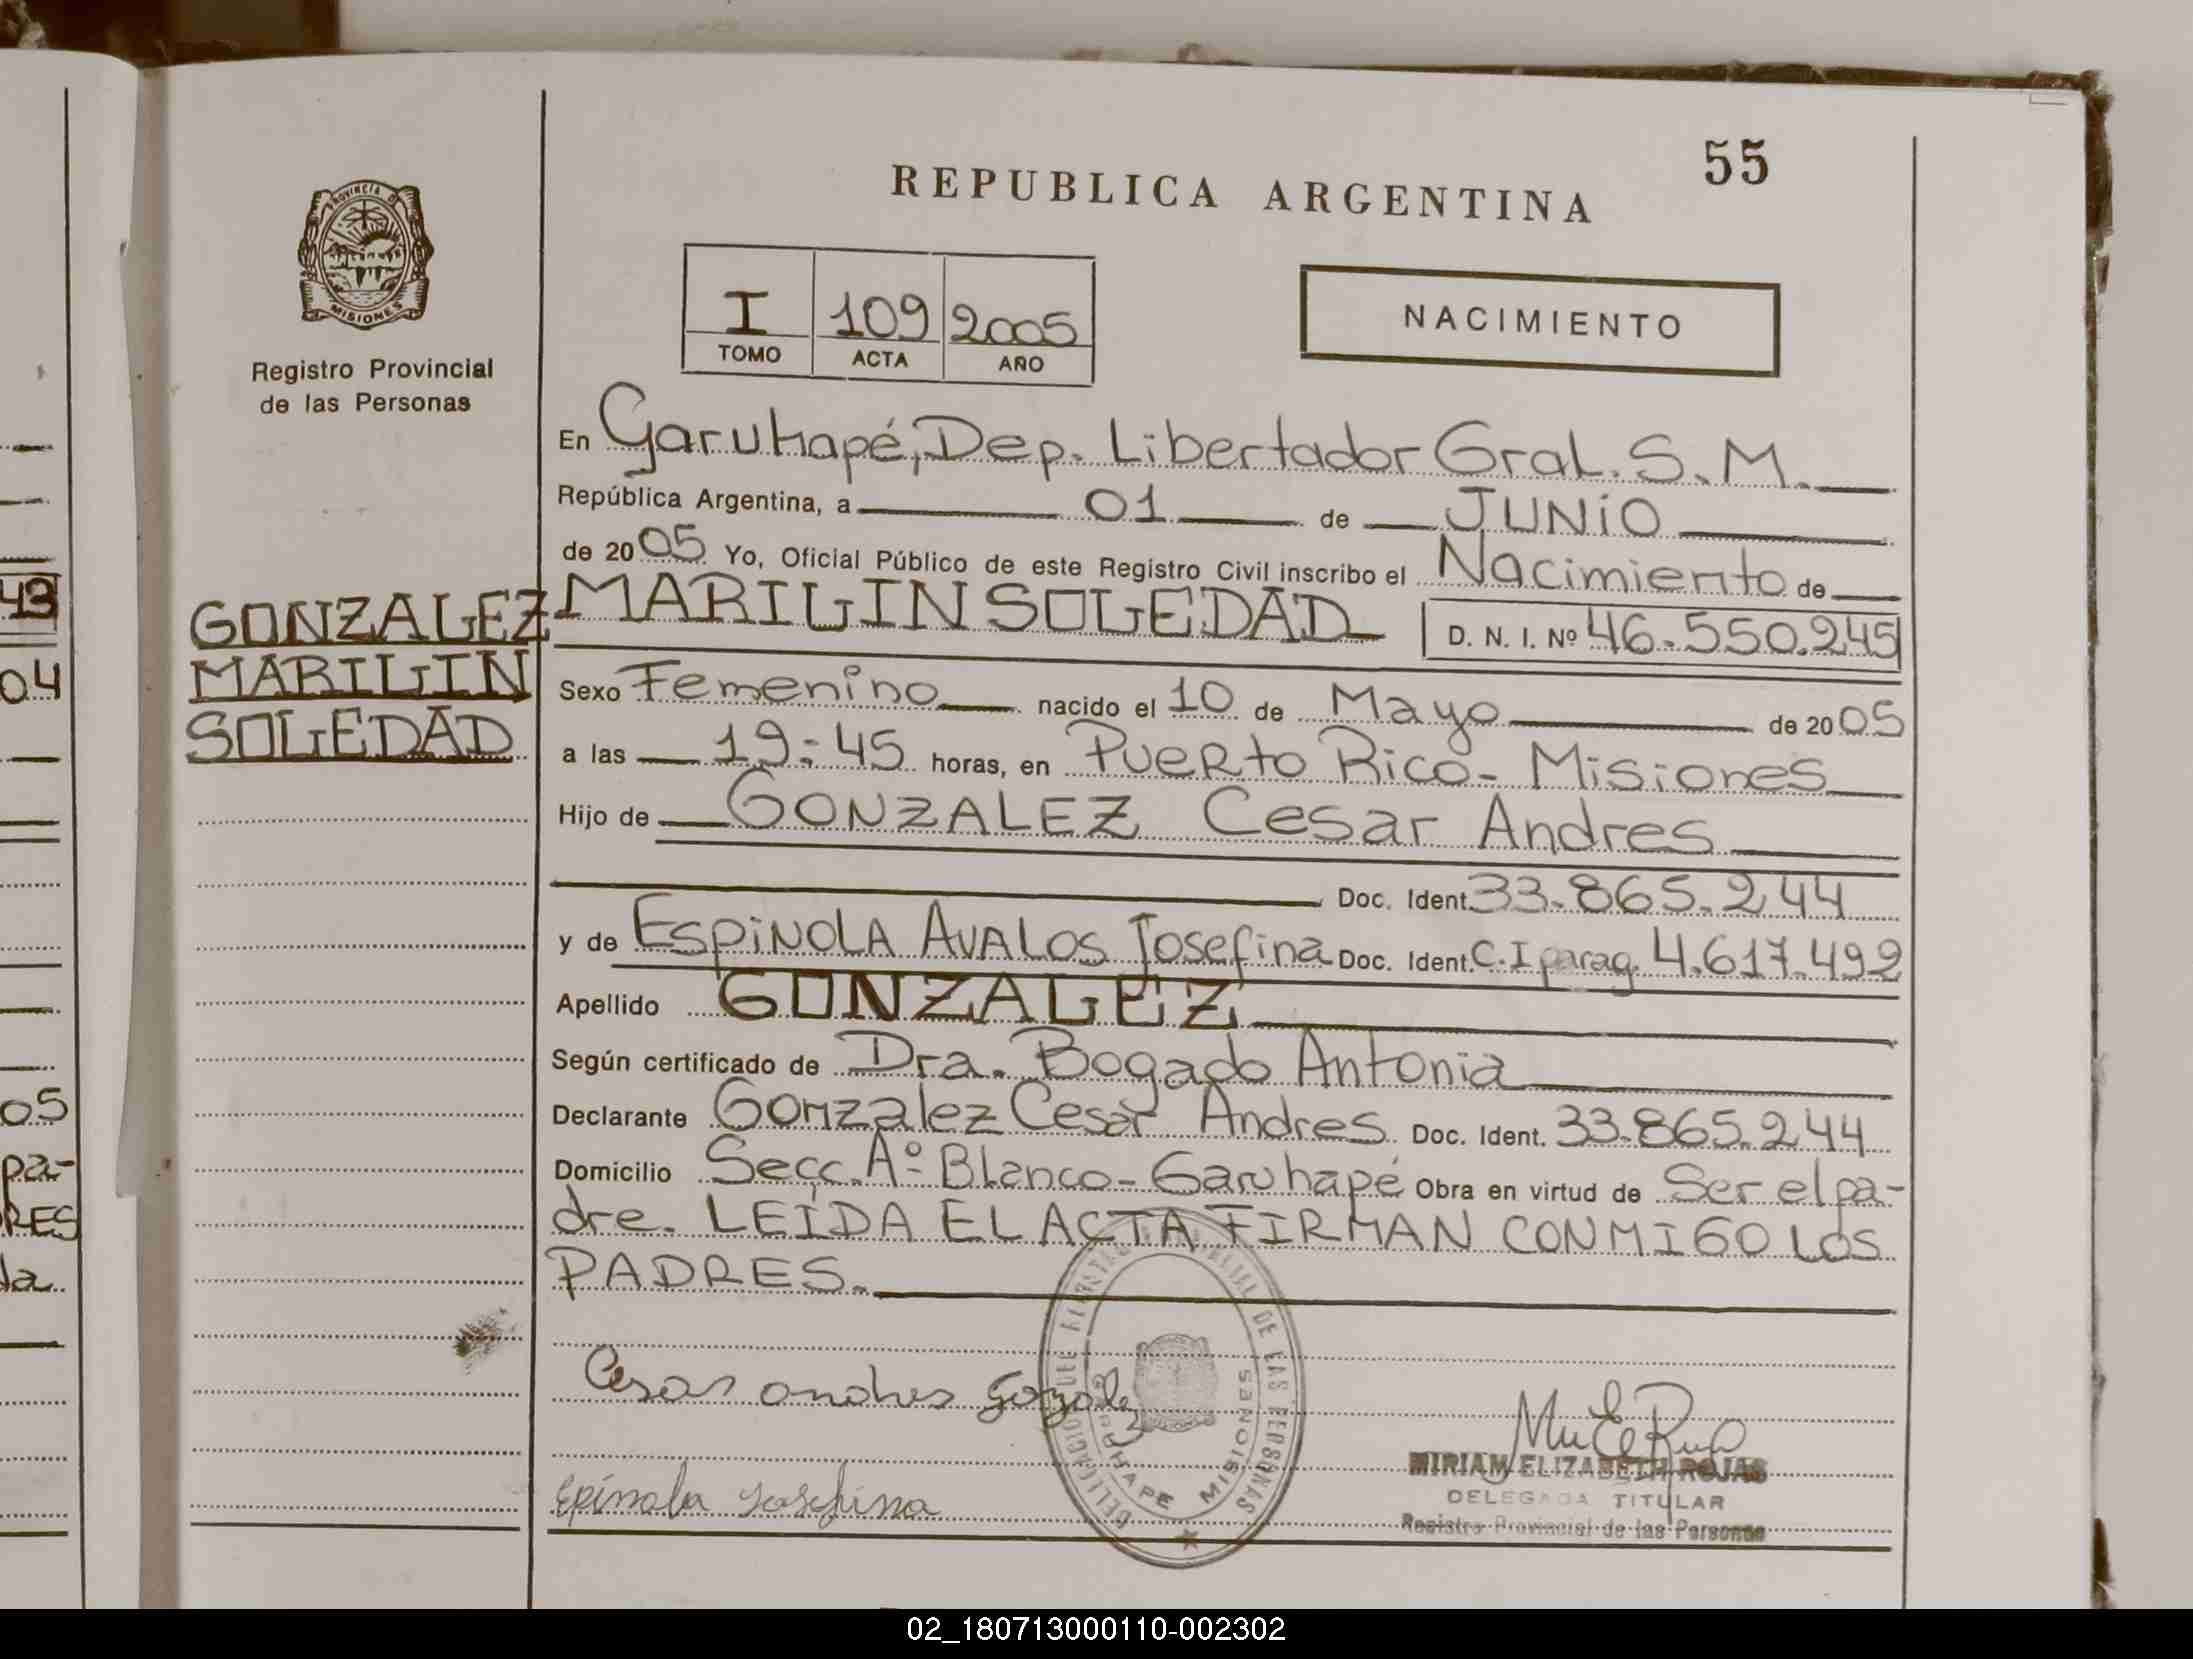 55
REPUBLICA ARGENTINA
PROVINCIA DE
MISIONES
Registro Provincial
de las Personas
I 109 2005
TOMO ACTA AÑO
NACIMIENTO
En Garuhapé, Dep. Libertador Gral. S. M.
República Argentina, a 01 de JUNIO
de 2005 Yo, Oficial Público de este Registro Civil inscribo el Nacimiento de
GONZALEZ
MARILIN
SOLEDAD
MARILIN SOLEDAD D. N. I. Nº 46.550.245
Sexo Femenino nacido el 10 de Mayo de 2005
a las 19:45 horas, en Puerto Rico - Misiones
Hijo de GONZALEZ Cesar Andres
Doc. Ident. 33.865.244
y de ESPINOLA AVALOS Josefina Doc. Ident. C.I parag. 4.617.492
Apellido GONZALEZ
Según certificado de Dra. Bogado Antonia
Declarante Gonzalez Cesar Andres Doc. Ident. 33.865.244
Domicilio Secc. Aº Blanco - Garuhapé Obra en virtud de Ser el pa-
dre. LEIDA EL ACTA FIRMAN CONMIGO LOS
PADRES.
Cesar andres Gozalez
Epinola Josefina
GARUHAPE MISIONES
DE LAS PERSONAS
MIRIAM ELIZABETH ROJAS
DELEGADA TITULAR
Registro Provincial de las Personas
43
04
05
pa-
RES
da
02_180713000110-002302